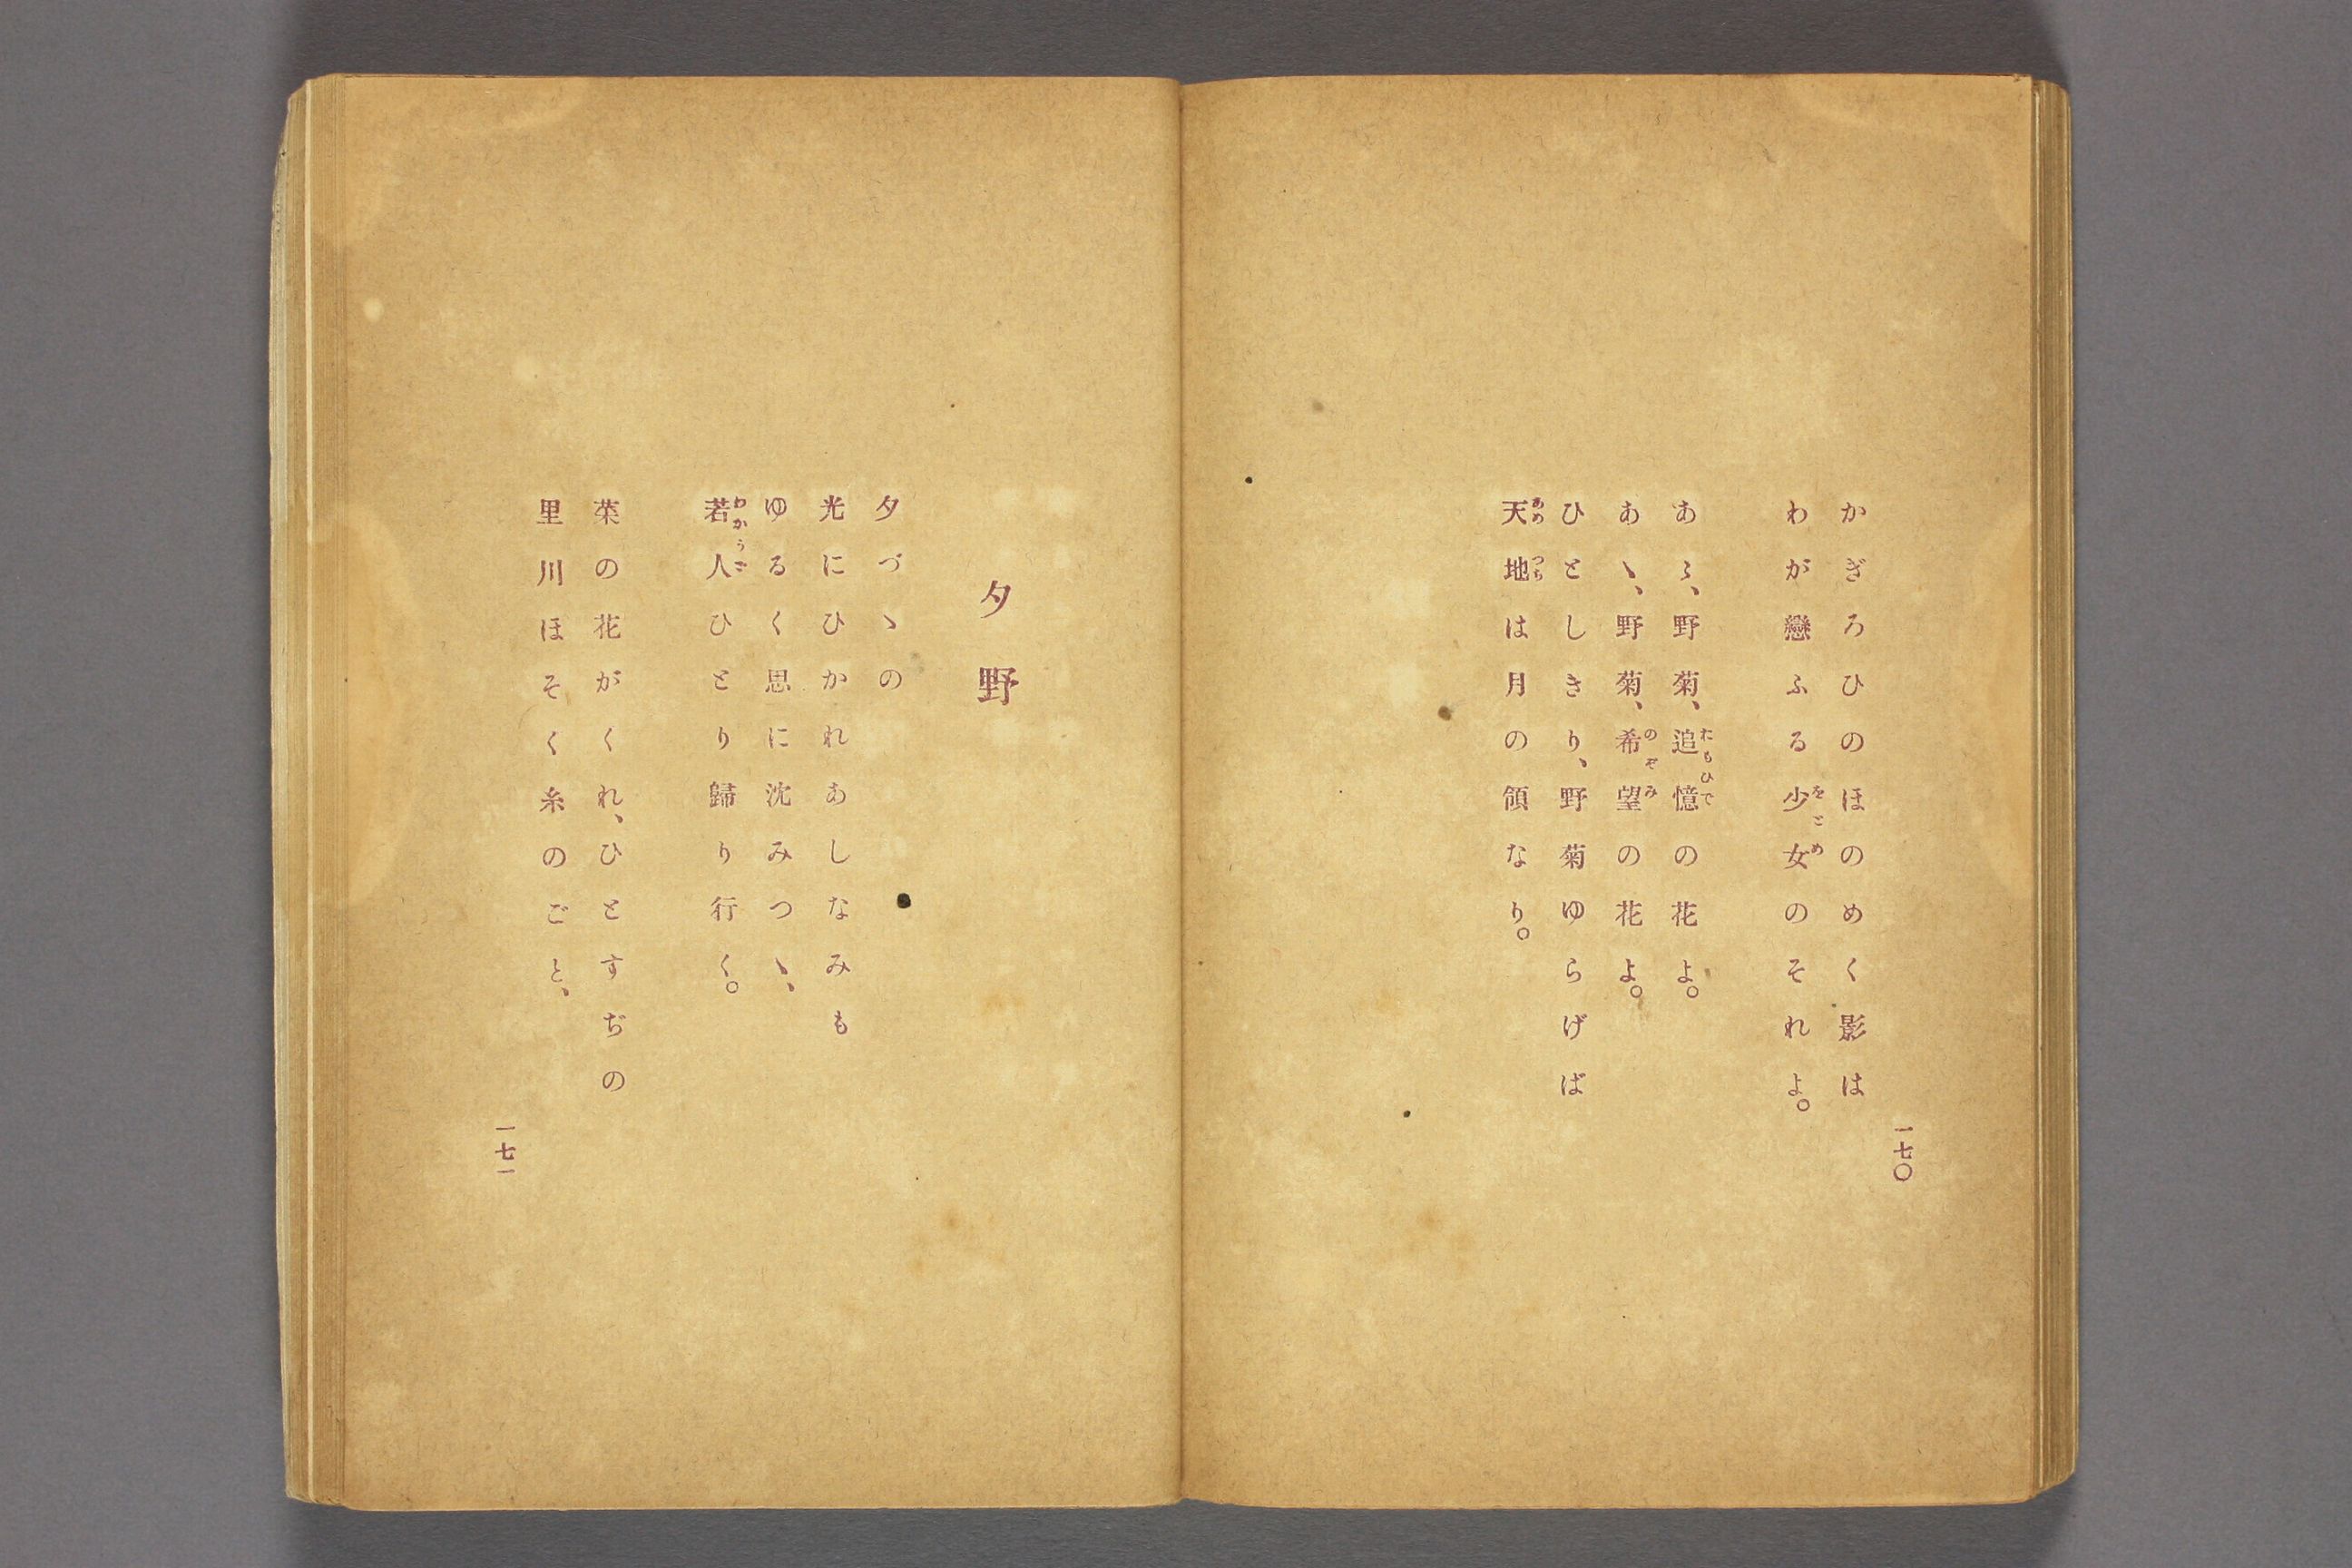 かぎろひのほのめく影は
わが戀ふる少女のそれよ。
あゝ、野菊、追憶の花よ。
あゝ、野菊、希望の花よ。
ひとしきり、野菊ゆらげば
天地は月の領なり。
一七〇
夕野
夕づゝの
光にひかれあしなみも
ゆるく思に沈みつゝ、
若人ひとり歸り行く。
菜の花がくれ、ひとすぢの
里川ほそく糸のごと、
一七一